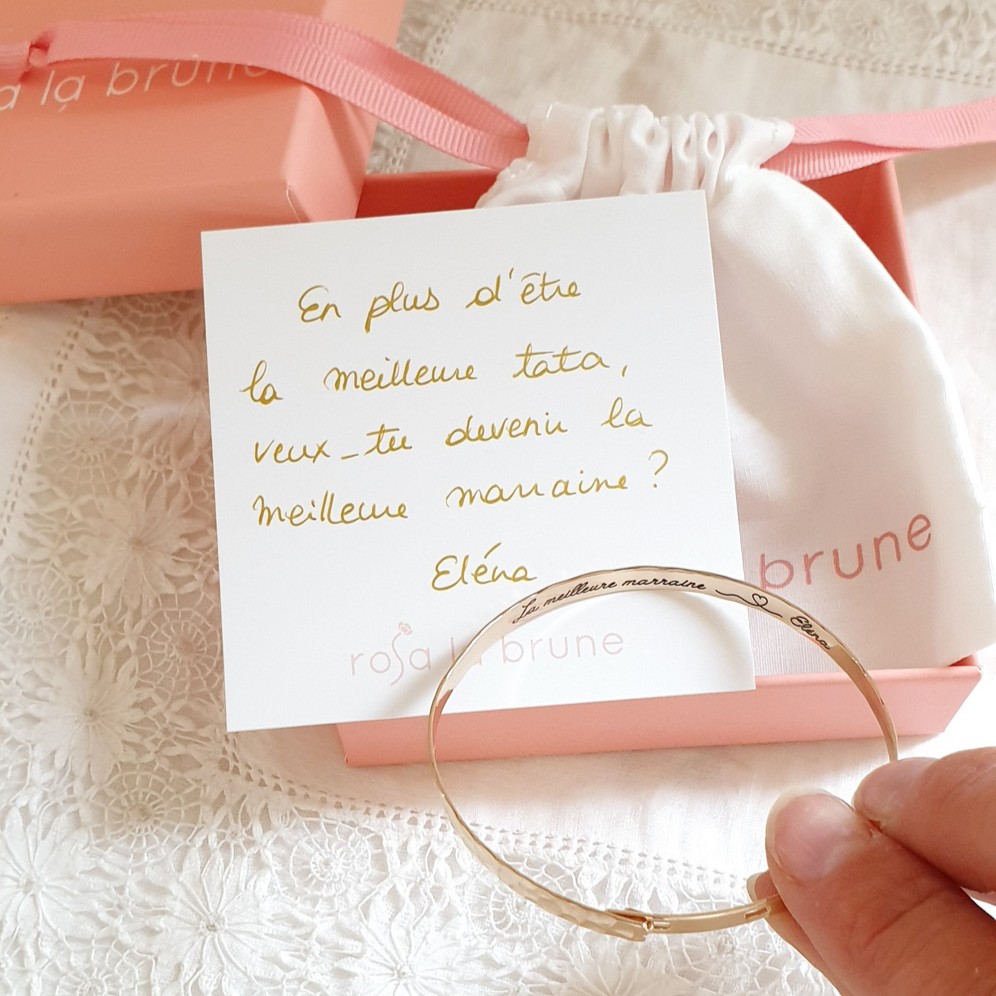 a la brune
En plus d'être
la meilleure tata,
veux-tu devenir la
meilleure marraine ?
Eléna
rosa la brune
brune
La meilleure marraine Eléna